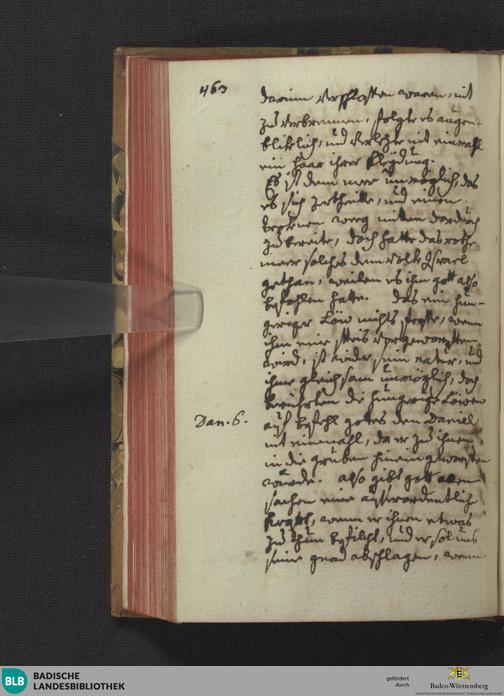 463
darinn verschlossen waren, nit
zu verbrennen, folgte es augen-
blicklich, und versehrte nit einmahl
ein haar ihrer kleydung.
Es ist dem meer unmöglich, das
es sich zertheille, und einen
trocknen weeg mitten dardurch
zu bereite, doch hatte das rothe
meer solches dem volk Israel
gethan, weilen es ihm gott also
befohlen hatte. Das ein hun-
geriger Löw nichts fresse, wenn
ihm eine speis vorgeworffen
wird, ist wieder seine natur, und
ihme gleichsam unmöglich, doch
berührten die hungerige Löwen
auf befehl gottes den Daniel
Dan. 6.
nit einmahl, da er zu ihnen
in die gruben hinein geworffen
wurde. also gibt gott allen
sachen eine ausserordentliche
krafft, wenn er ihnen etwas
zu thun befilcht, und er sol uns
seine gnad abschlagen, wenn
BLB
BADISCHE
LANDESBIBLIOTHEK
gefördert
durch
Baden-Württemberg